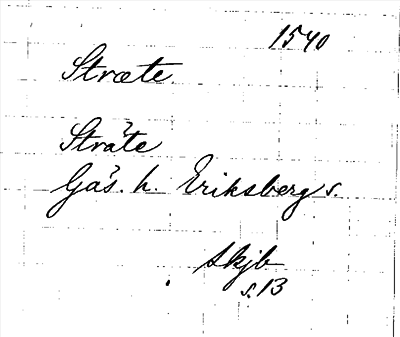 1540
Stræte
Stråte
Gäs. h. Eriksberg s.
skjb
s. 13